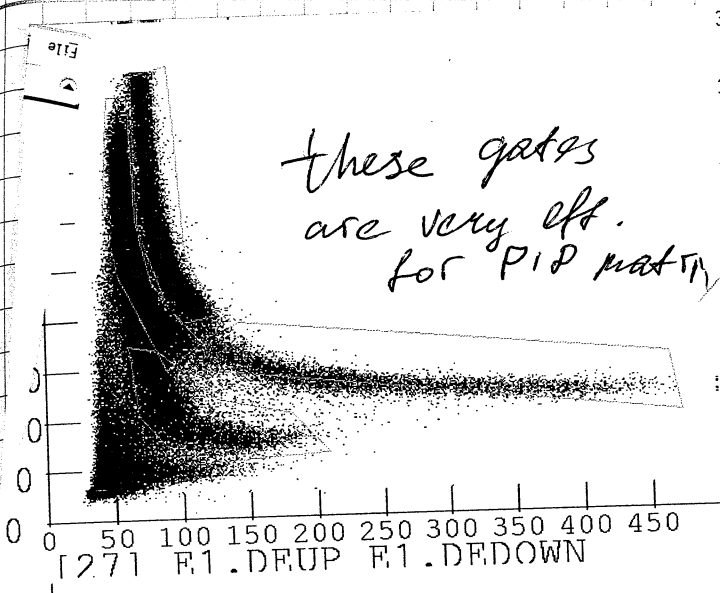 File
these gates
are very eff.
for PID matrix
0
0
0
0
0 50 100 150 200 250 300 350 400 450
[27] E1.DEUP E1.DEDOWN